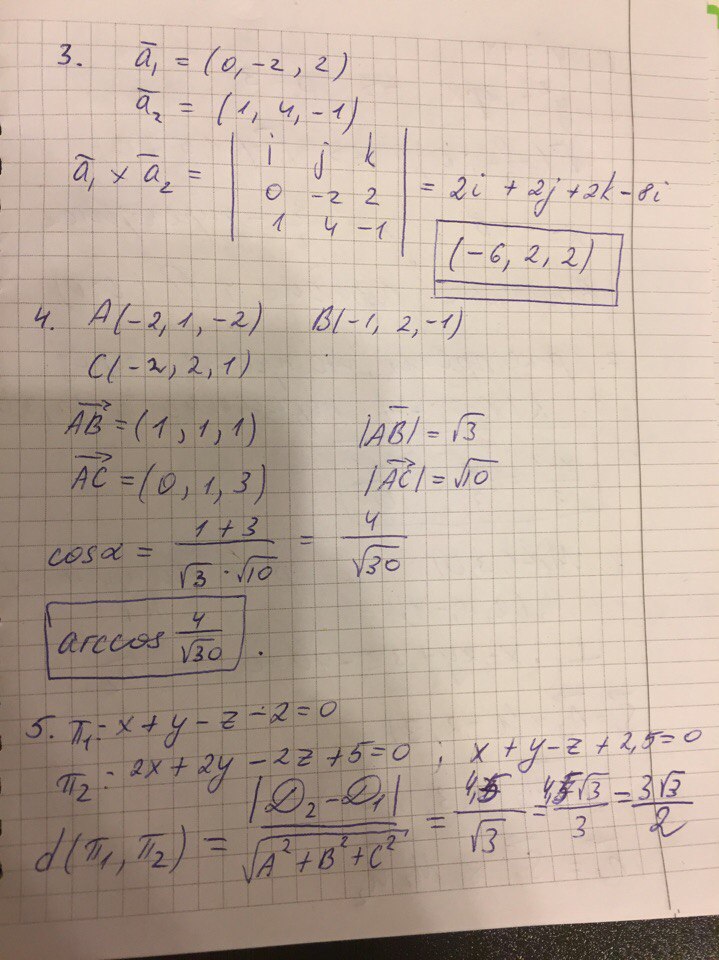 3. a̅₁ = (0, -2, 2)
a̅₂ = (1, 4, -1)
a̅₁ × a̅₂ = | i j k | = 2i + 2j + 2k - 8i
| 0 -2 2 |
| 1 4 -1 |
(-6, 2, 2)
4. A(-2, 1, -2) B(-1, 2, -1)
C(-2, 2, 1)
AB = (1, 1, 1) |AB| = √3
AC = (0, 1, 3) |AC| = √10
cosα = (1+3)/(√3 · √10) = 4/√30
arccos 4/√30 .
5. π₁: x + y - z - 2 = 0
π₂: 2x + 2y - 2z + 5 = 0 ; x + y - z + 2,5 = 0
d(π₁, π₂) = |D₂ - D₁|/√(A² + B² + C²) = 4,5/√3 = 4,5√3/3 = 3√3/2